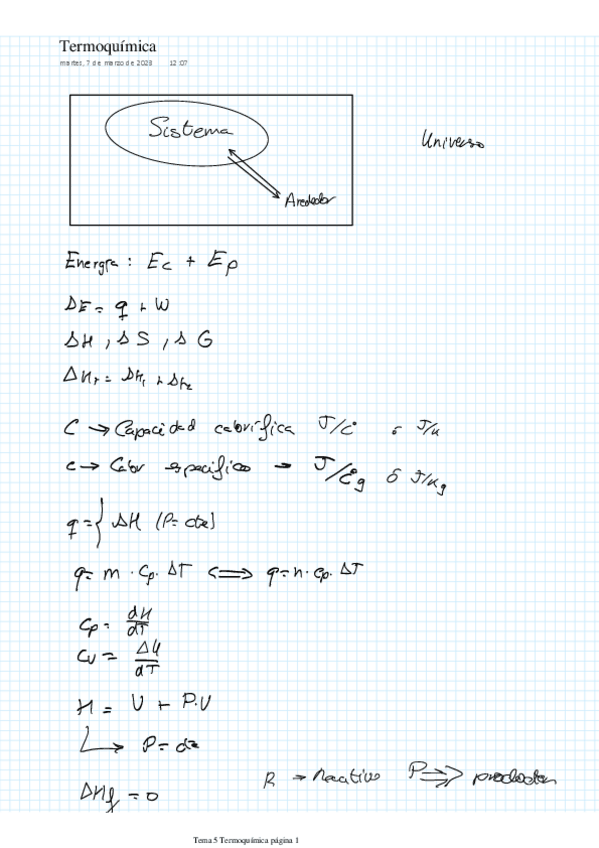 Termoquímica
martes, 7 de marzo de 2023 12:07
Sistema
Universo
Alrededor
Energía : Ec + Ep
ΔE = q + W
ΔH , Δ S , Δ G
C → Capacidad calorífica J/c° ó J/K
c → Calor específico → J/c°g ó J/Kg
q = { ΔH (P = cte)
q = m · Cp · ΔT ⟺ q = n · Cp · ΔT
Cp = dH/dT
Cv = ΔU/dT
H = U + P.V
↳ P = cte
R → Reactivo P ⟹ productos
ΔHf = 0
Tema 5 Termoquímica página 1